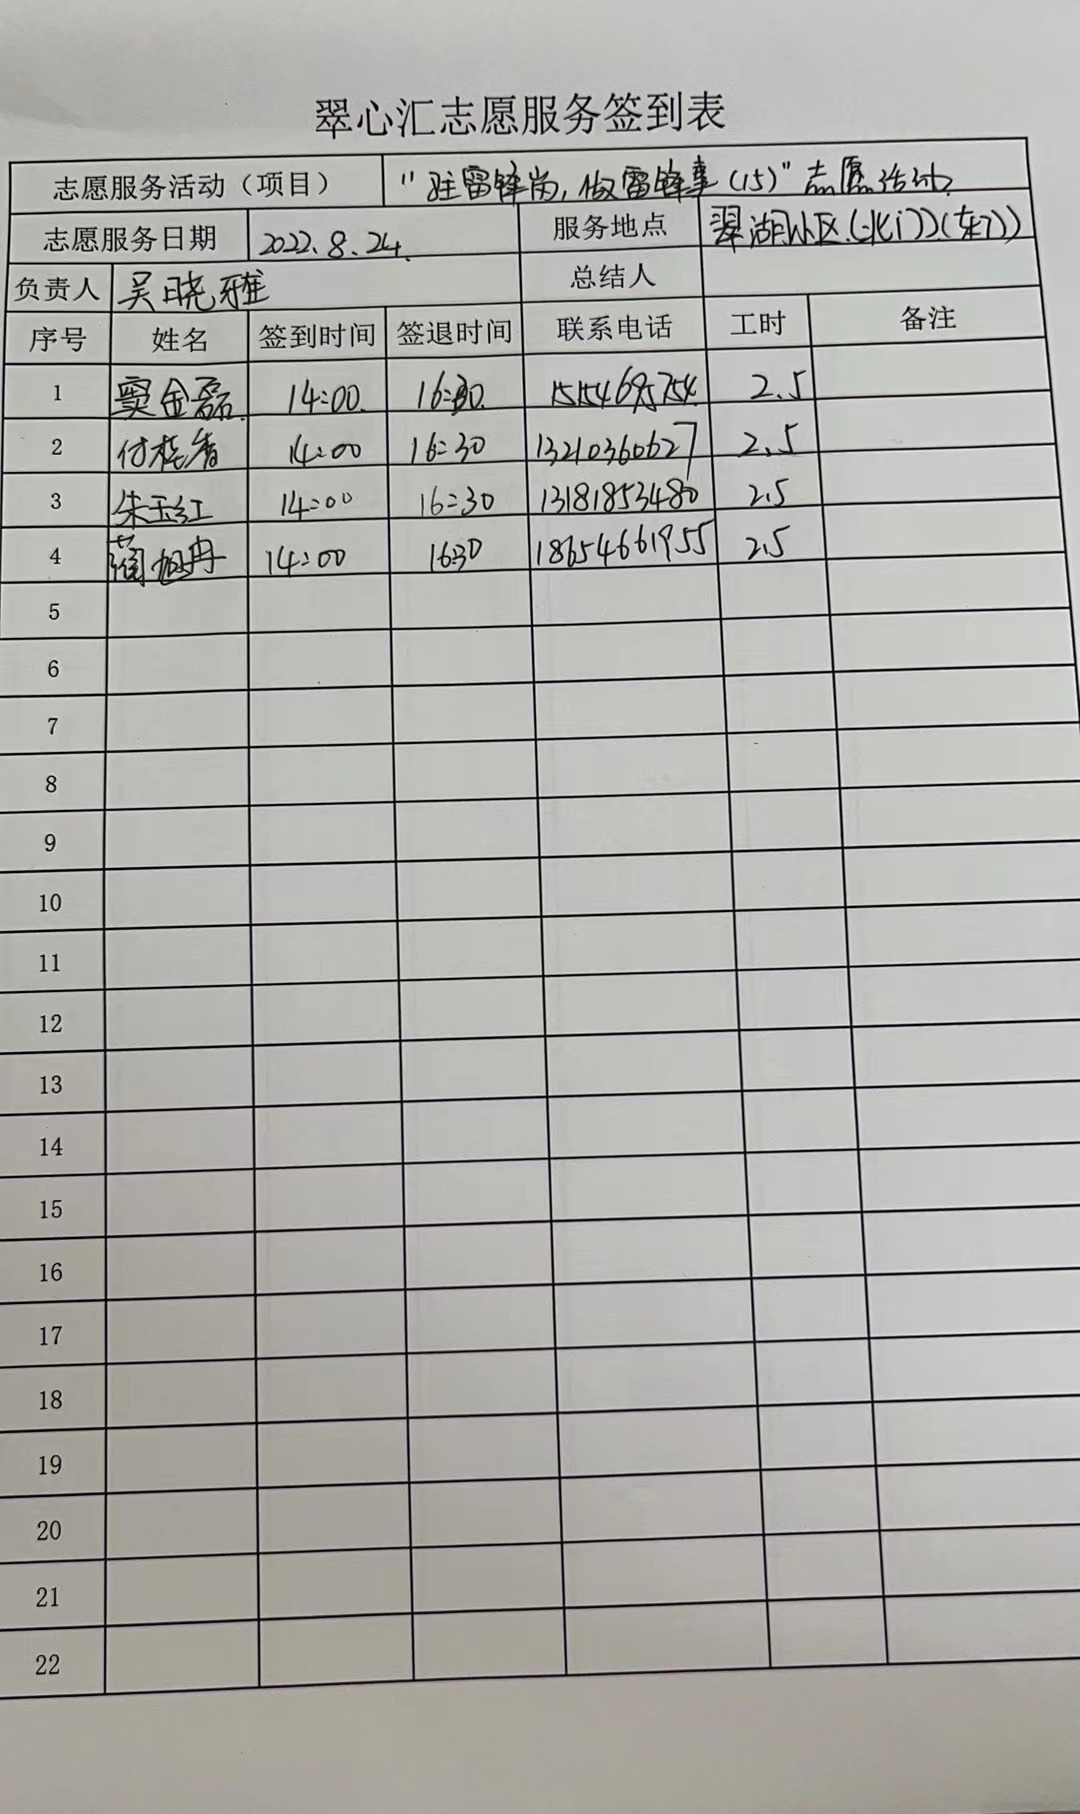 翠心汇志愿服务签到表
志愿服务活动（项目） "驻雷锋岗,做雷锋事(15)"志愿活动
志愿服务日期 2022.8.24. 服务地点 翠湖小区(北门)(东门)
负责人 吴晓雅 总结人
序号 姓名 签到时间 签退时间 联系电话 工时 备注
1 窦金磊 14:00 16:30 15154695754 2.5
2 付桂香 14:00 16:30 13210360627 2.5
3 朱玉红 14:00 16:30 13181853480 2.5
4 14:00 16:30 18654661955 2.5
5
6
7
8
9
10
11
12
13
14
15
16
17
18
19
20
21
22